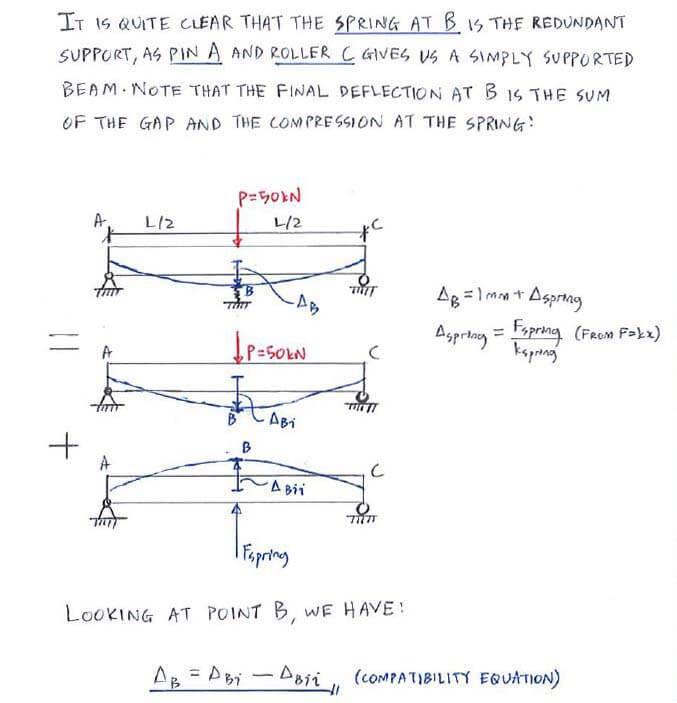 IT IS QUITE CLEAR THAT THE SPRING AT B IS THE REDUNDANT
SUPPORT, AS PIN A AND ROLLER C GIVES US A SIMPLY SUPPORTED
BEAM. NOTE THAT THE FINAL DEFLECTION AT B IS THE SUM
OF THE GAP AND THE COMPRESSION AT THE SPRING:
P=50kN
A L/2 L/2 C
B
ΔB
ΔB = 1mm + Δspring
Δspring = Fspring/kspring (FROM F=kx)
=
A P=50kN C
B ΔBi
+
B
A C
ΔBii
Fspring
LOOKING AT POINT B, WE HAVE:
ΔB = ΔBi - ΔBii (COMPATIBILITY EQUATION)